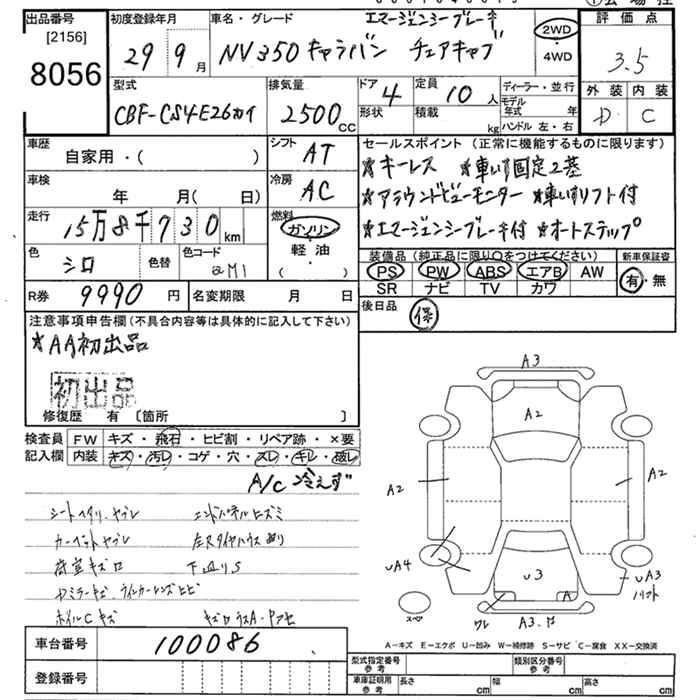 出品番号
[2156]
8056
初度登録年月
29 9月
車名・グレード
エマージェンシーブレーキ
NV350 キャラバン チェアキャブ
2WD
4WD
評価点
3.5
型式
CBF-CS4E26カイ
排気量
2500 CC
ドア 4
形状
定員 10 人
積載 kg
ディーラー・並行
モデル年式 年
ハンドル 左・右
外装 内装
D C
車歴
自家用・( )
シフト AT
車検
年 月( 日)
冷房 AC
走行
15万8千730km
燃料
ガソリン
軽油
・( )
色
シロ
色替
色コード
QM1
R券 9990 円
名変期限 月 日
セールスポイント (正常に機能するものに限ります)
★キーレス ★車いす固定2基
★アラウンドビューモニター ★車いすリフト付
★エマージェンシーブレーキ付 ★オートステップ
装備品 (純正品に限り○をつけてください)
PS PW ABS エアB AW
SR ナビ TV カワ
新車保証書
有・無
後日品 保
注意事項申告欄(不具合内容等は具体的に記入して下さい)
★AA初出品
初出品
修復歴 有 〔箇所 〕
検査員記入欄
FW キズ・飛石・ヒビ割・リペア跡・×要
内装 キズ・汚レ・コゲ・穴・スレ・キレ・破レ
A/C 冷えず
シートヘタリ、ヤブレ エンドパネルヒズミ
カーペットヤブレ 左Rタイヤハウス凹り
荷室キズロ 下回りS
Dミラーキズ、ウインカーレンズヒビ
ホイルCキズ
A3
A2
A2
A2
UA4
U3
A
UA3
リフト
ワレ
A3.
スペア
A-キズ E-エクボ U-凹み W-補修跡 S-サビ C-腐食 XX-交換済
車台番号 100086
登録番号
型式指定番号 参考
類別区分番号 参考
車庫証明用 参考 長さ cm 幅 cm 高さ cm